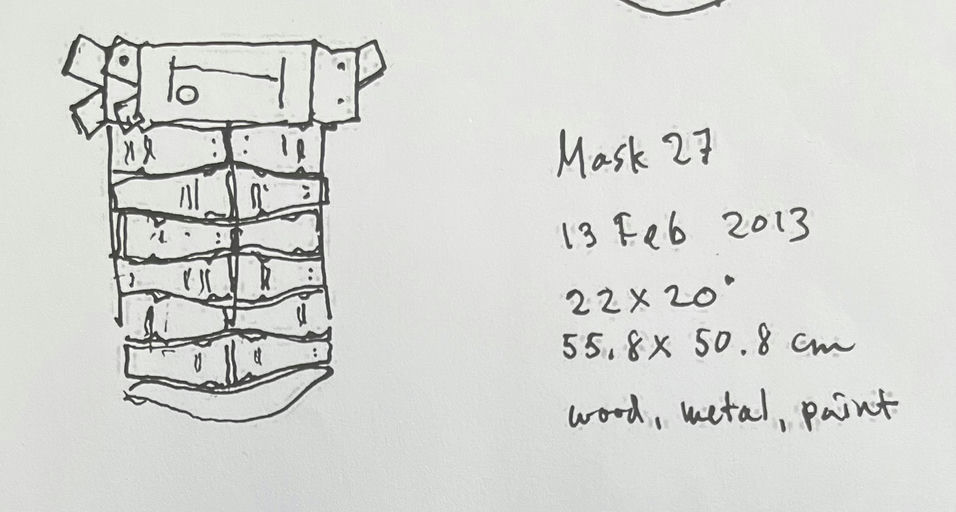 Mask 27
13 Feb 2013
22 x 20"
55.8 x 50.8 cm
wood, metal, paint